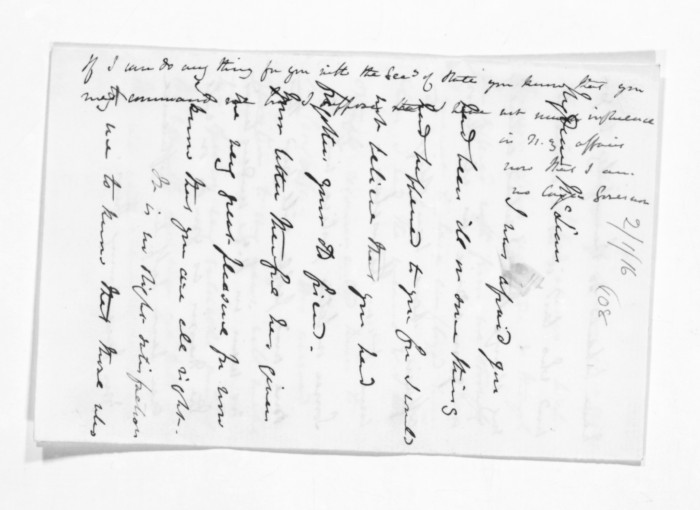 If I can do any thing for you with the Secy of State you know that you
may command me but I suppose I have not much influence
in N. Z. affairs
now that I am
no longer Governor
2/1/16
608
My dear McLean
I was afraid you
had been ill or some thing
had happened to you for I could
not believe that you had
forgotten your old friend.
Your letter therefore has given
me very great pleasure for now
I know that you are all right.
It is no slight satisfaction
to me to know that those who